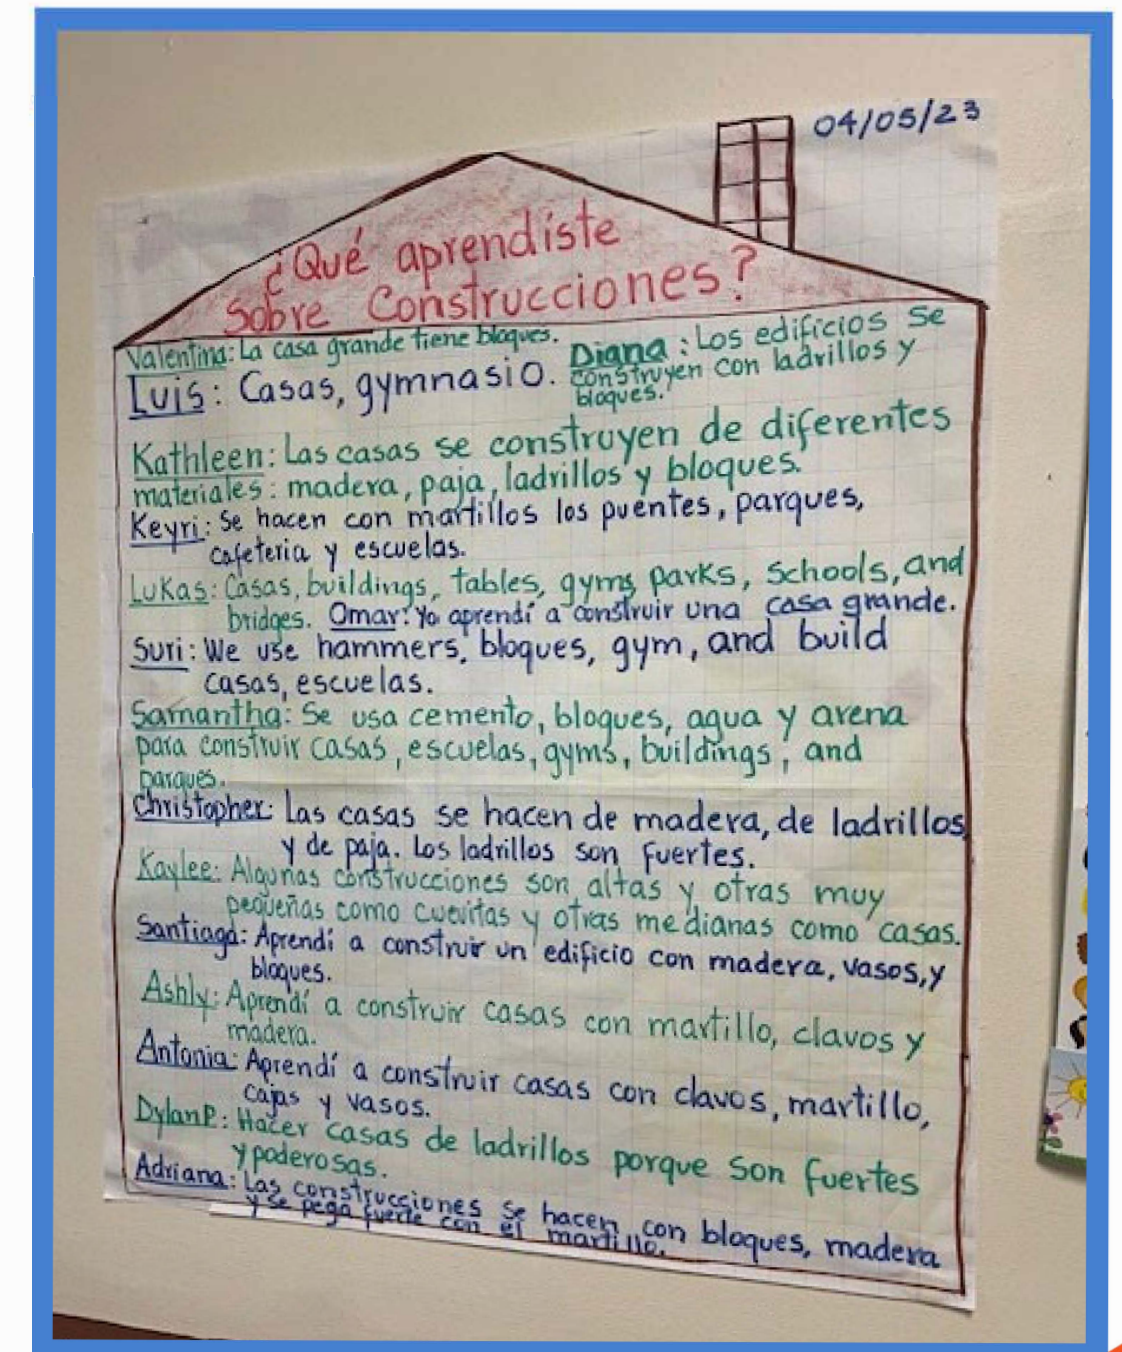 04/05/23
¿Qué aprendiste
sobre Construcciones?
Valentina: La casa grande tiene bloques.
Diana: Los edificios se
construyen con ladrillos y
bloques.
Luis: Casas, gymnasio.
Kathleen: Las casas se construyen de diferentes
materiales: madera, paja, ladrillos y bloques.
Keyri: Se hacen con martillos los puentes, parques,
cafeteria y escuelas.
Lukas: Casas, buildings, tables, gyms, parks, schools, and
bridges. Omar: Yo aprendí a construir una casa grande.
Suri: We use hammers, bloques, gym, and build
casas, escuelas.
Samantha: Se usa cemento, bloques, agua y arena
para construir casas, escuelas, gyms, buildings, and
parques.
Christopher: Las casas se hacen de madera, de ladrillos
y de paja. Los ladrillos son fuertes.
Kaylee: Algunas construcciones son altas y otras muy
pequeñas como cuevitas y otras medianas como casas.
Santiago: Aprendí a construir un edificio con madera, vasos, y
bloques.
Ashly: Aprendí a construir casas con martillo, clavos y
madera.
Antonia: Aprendí a construir casas con clavos, martillo,
cajas y vasos.
Dylan P.: Hacer casas de ladrillos porque son fuertes
y poderosas.
Adriana: Las construcciones se hacen con bloques, madera
y se pega fuerte con el martillo.